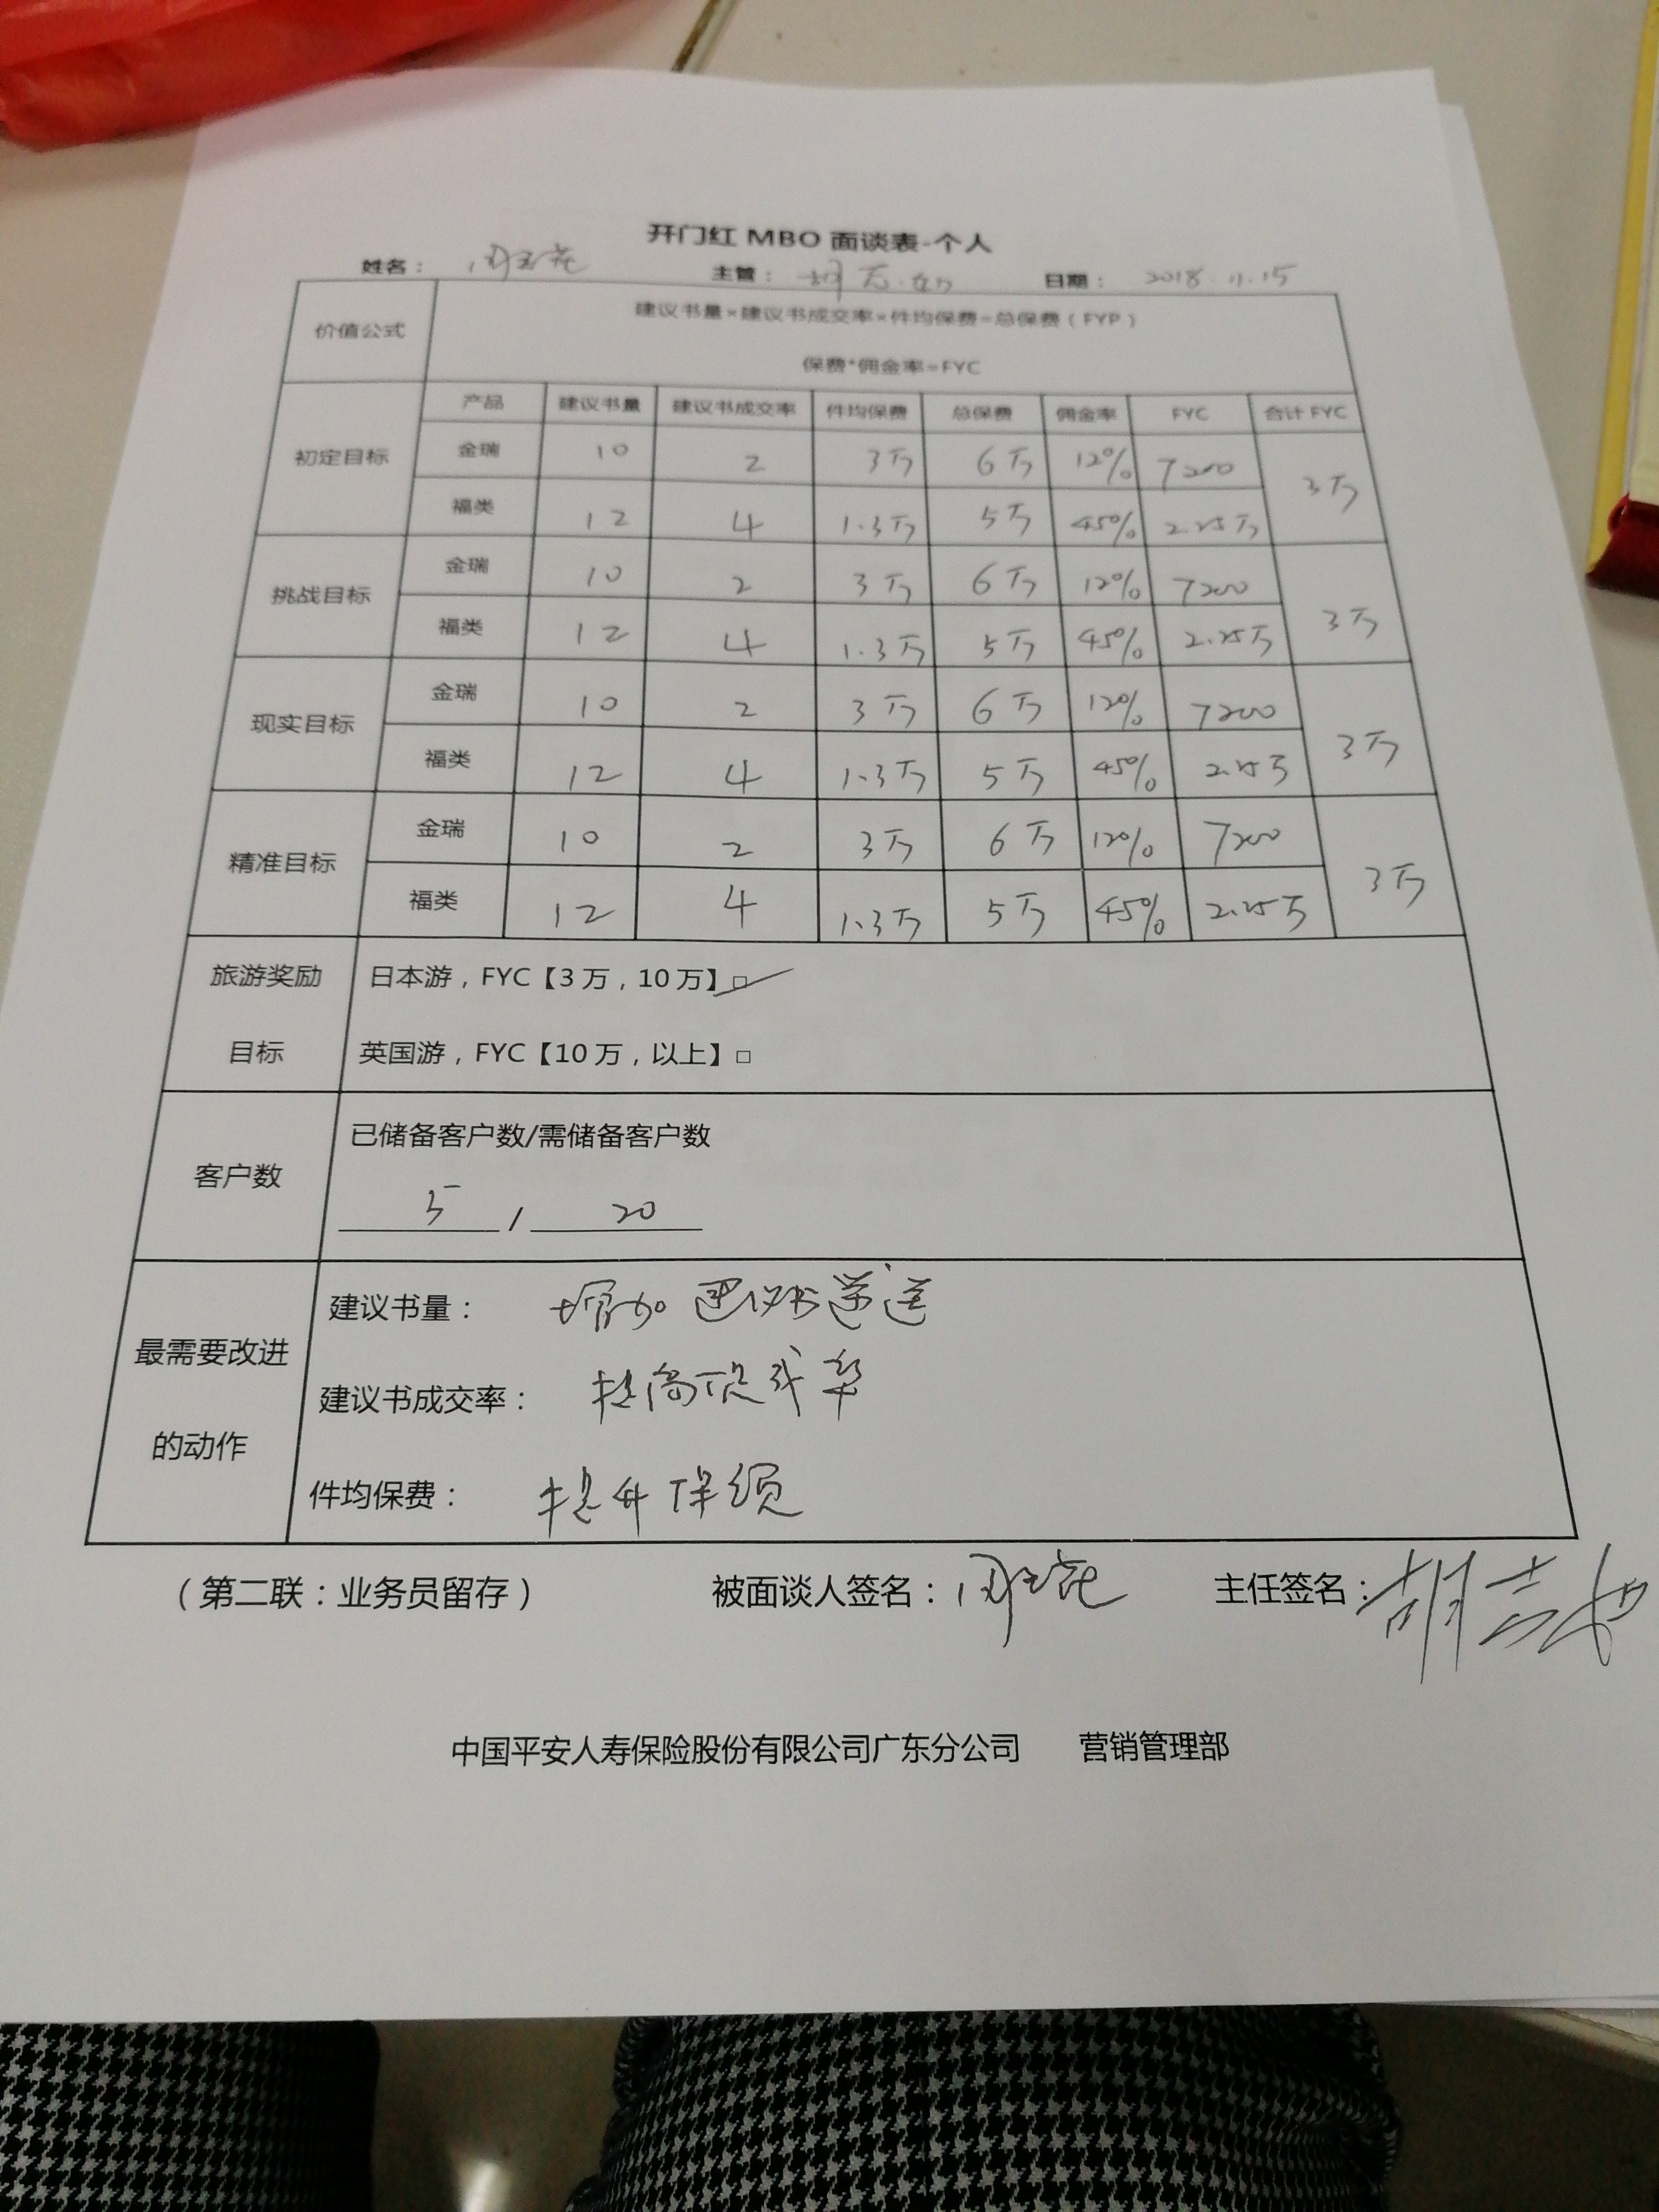 开门红 MBO 面谈表-个人
姓名： 周玉花 主管： 胡志如 日期： 2018.11.15
价值公式
建议书量*建议书成交率*件均保费=总保费（FYP）
保费*佣金率=FYC
产品 建议书量 建议书成交率 件均保费 总保费 佣金率 FYC 合计 FYC
初定目标
金瑞 10 2 3万 6万 12% 7200
福类 12 4 1.3万 5万 45% 2.25万
3万
挑战目标
金瑞 10 2 3万 6万 12% 7200
福类 12 4 1.3万 5万 45% 2.25万
3万
现实目标
金瑞 10 2 3万 6万 12% 7200
福类 12 4 1.3万 5万 45% 2.25万
3万
精准目标
金瑞 10 2 3万 6万 12% 7200
福类 12 4 1.3万 5万 45% 2.25万
3万
旅游奖励
目标
日本游，FYC【3万，10万】□✓
英国游，FYC【10万，以上】□
客户数
已储备客户数/需储备客户数
5 / 20
最需要改进
的动作
建议书量： 增加建议书递送
建议书成交率： 提高促成率
件均保费： 提升保额
（第二联：业务员留存） 被面谈人签名：周玉花 主任签名：胡志如
中国平安人寿保险股份有限公司广东分公司 营销管理部